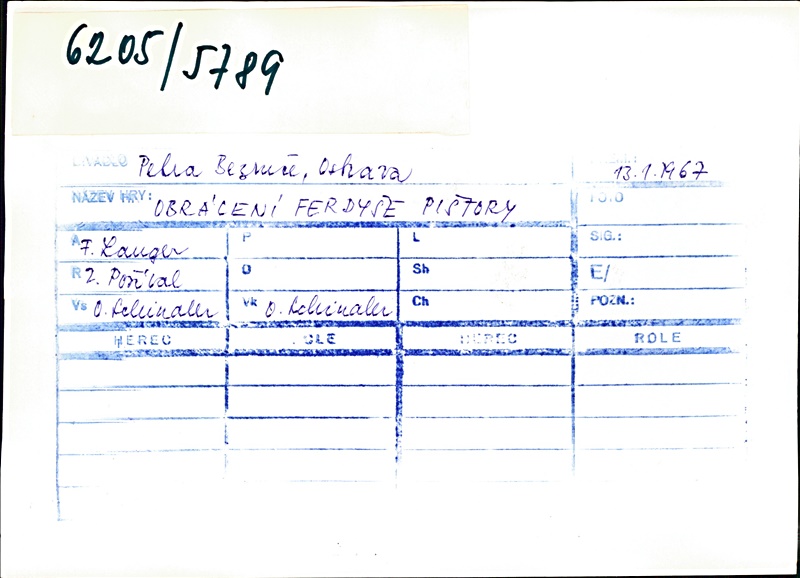 6205/5789
DIVADLO Petra Bezruče, Ostrava 13.1.1967
NÁZEV HRY: OBRÁCENÍ FERDYŠE PIŠTORY FOTO
A F. Langer P L SIG.:
R Z. Pošíval O Sh E/
Vs O. Schindler Vk O. Schindler Ch POZN.:
HEREC ROLE HEREC ROLE